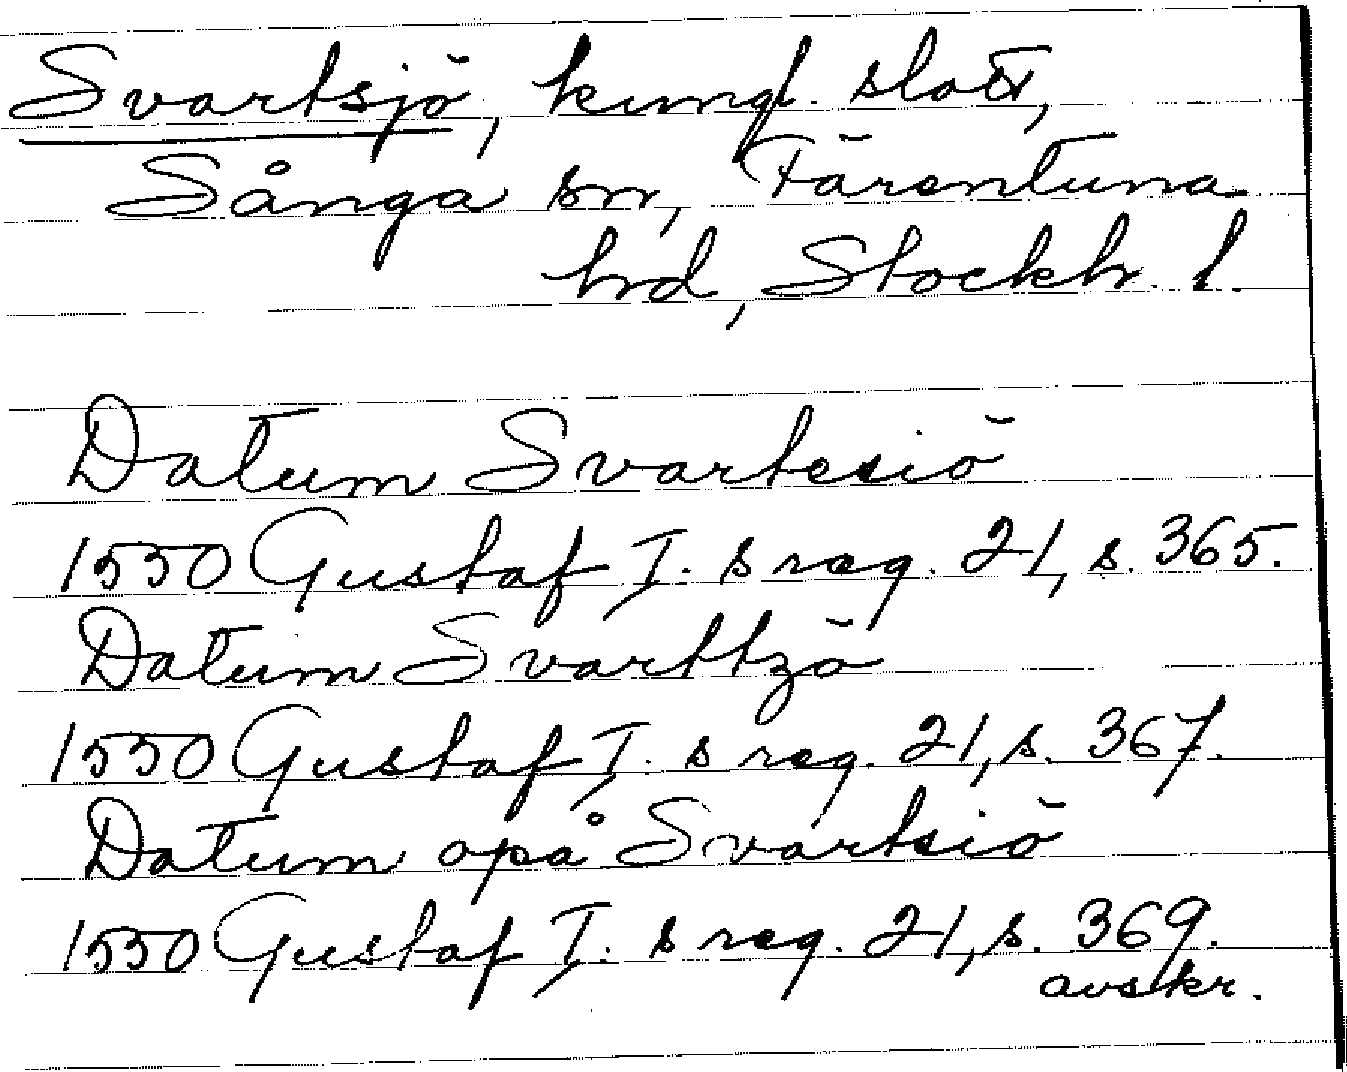 Svartsjö, kungl. slott,
Sånga sn, Färentuna
hd, Stockh. l.
Datum Svartesiö
1550 Gustaf I. s reg. 21, s. 365.
Datum Svarttzö
1550 Gustaf I. s reg. 21, s. 367.
Datum opå Svartsiö
1550 Gustaf I. s reg. 21, s. 369.
avskr.